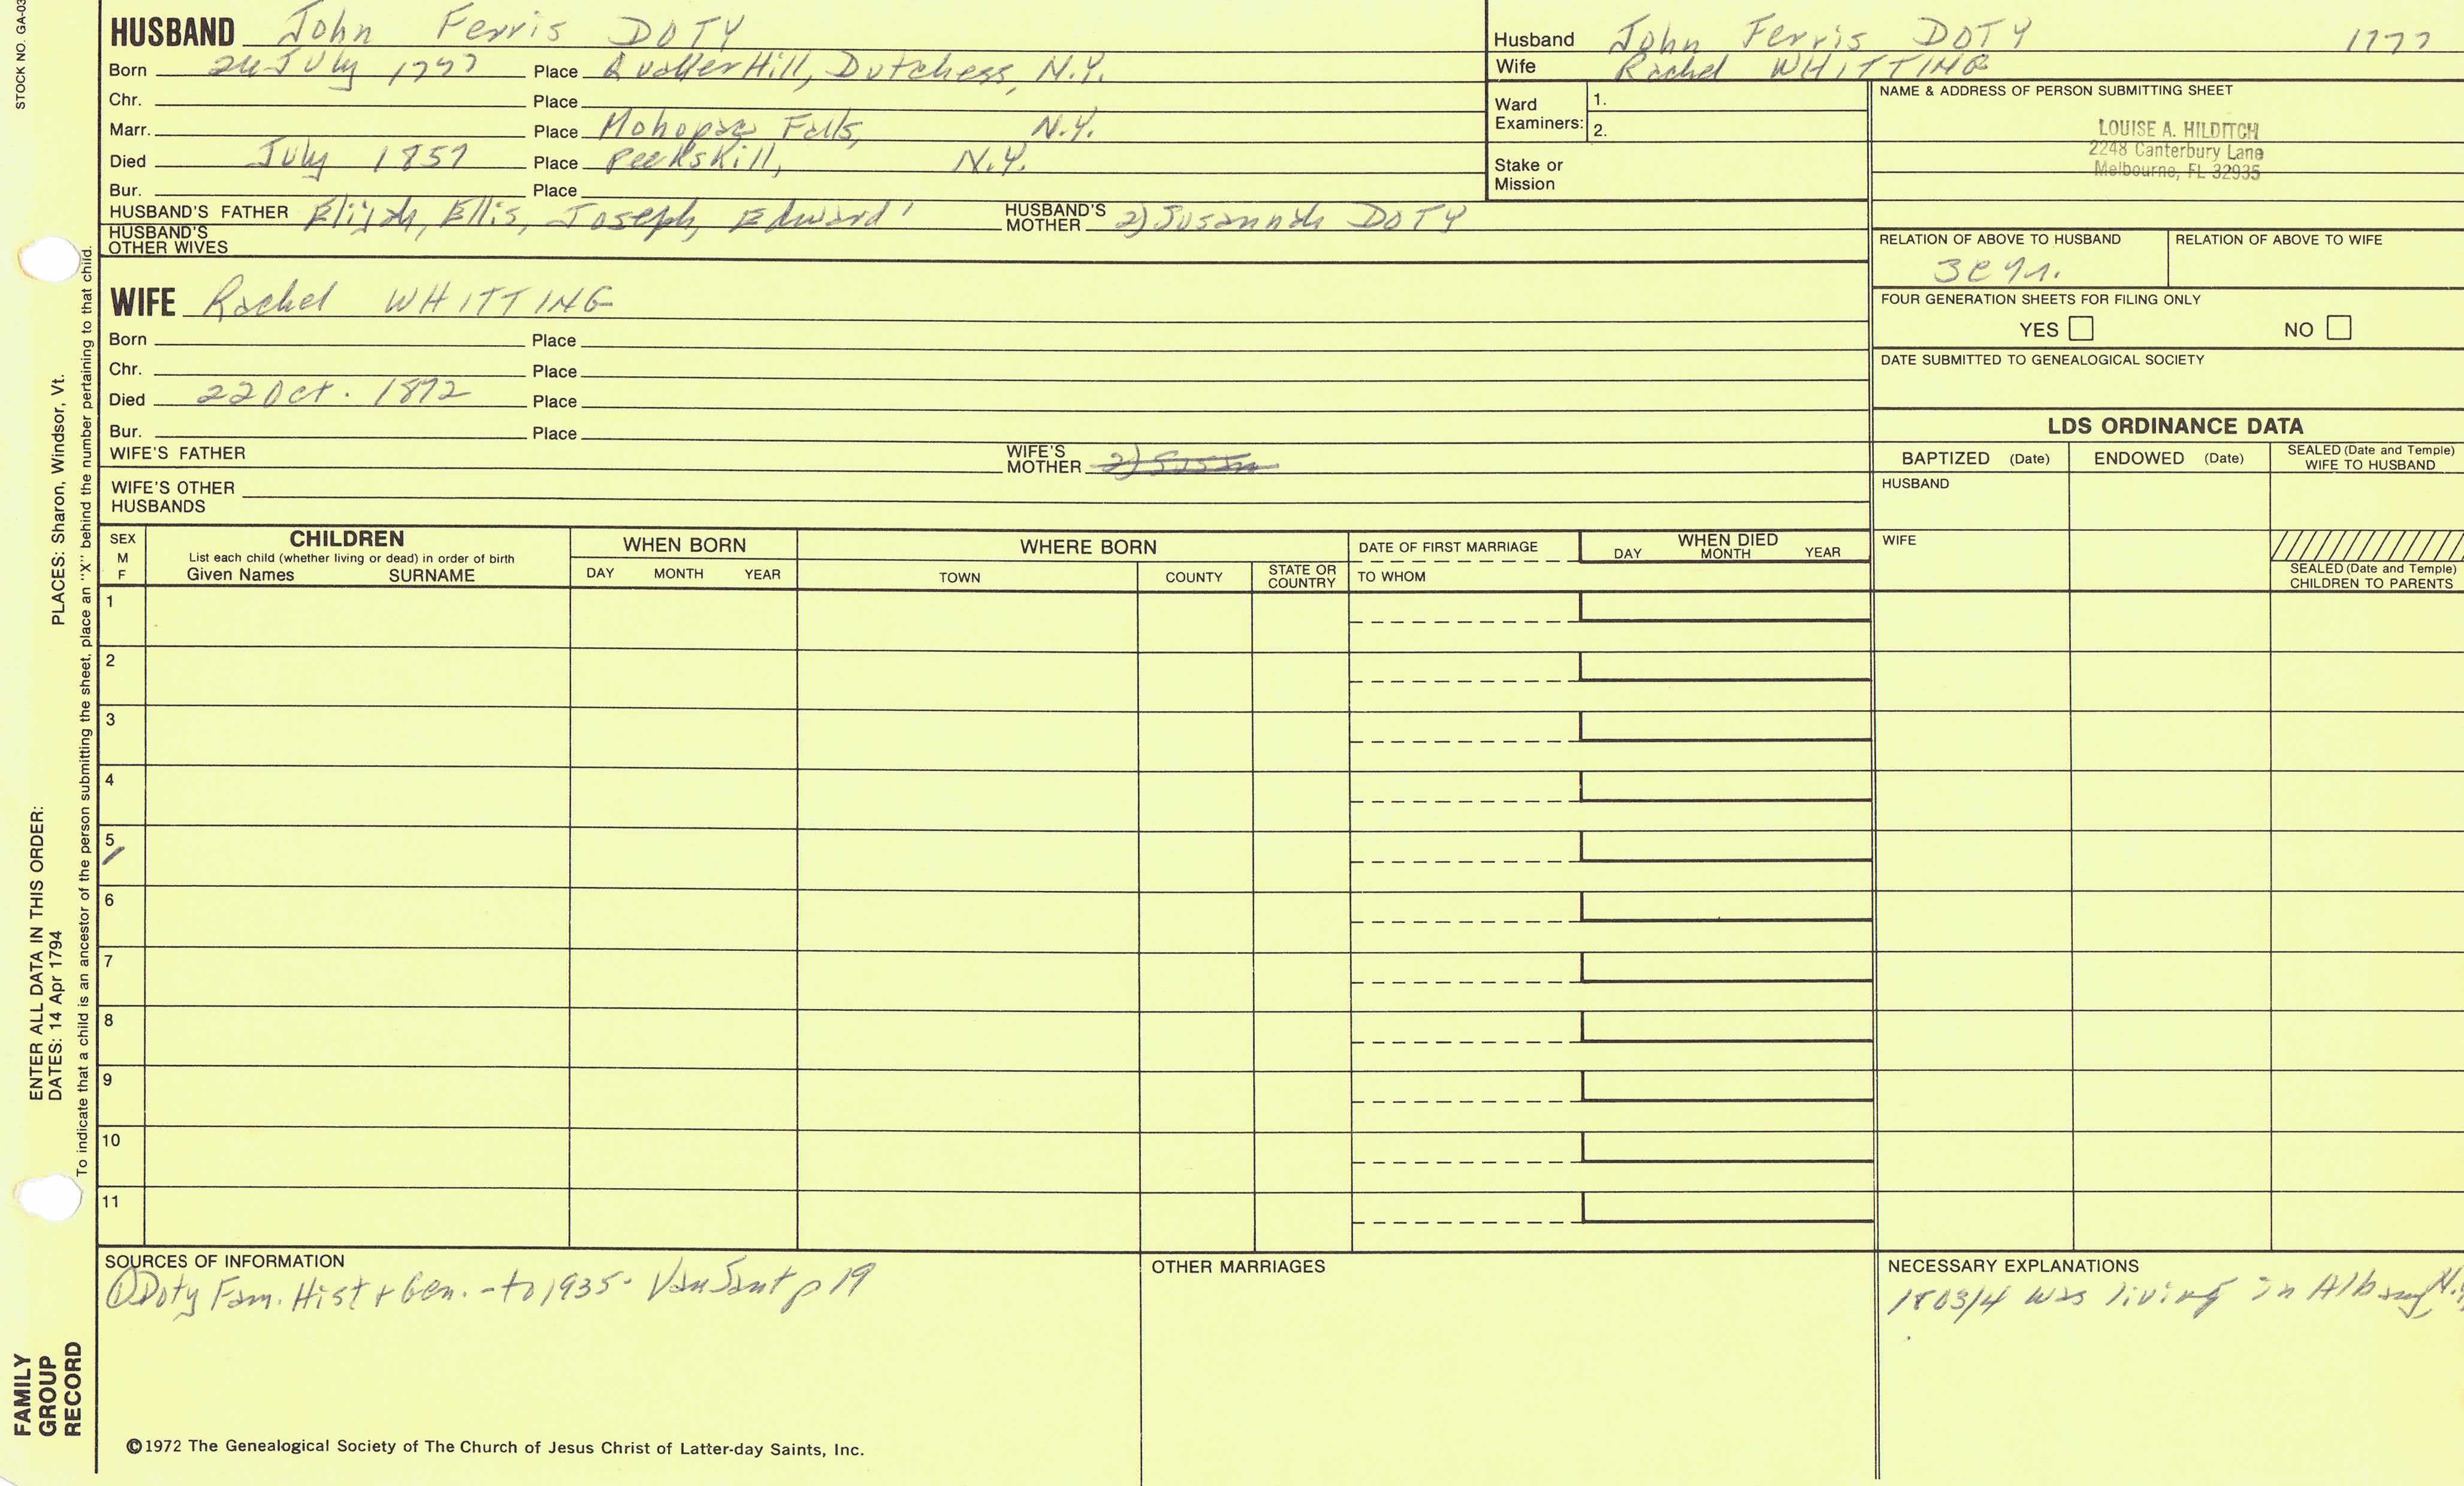 STOCK NO. GA-03
HUSBAND John Ferris DOTY
Born 24 July 1777 Place Quaker Hill, Dutchess, N.Y.
Chr. Place
Marr. Place Mohopac Falls, N.Y.
Died July 1857 Place Peekskill, N.Y.
Bur. Place
HUSBAND'S FATHER Elijah, Ellis, Joseph, Edward' HUSBAND'S MOTHER 2) Susannah DOTY
HUSBAND'S OTHER WIVES
Husband John Ferris DOTY 1777
Wife Rachel WHITTING
Ward Examiners: 1.
2.
Stake or Mission
NAME & ADDRESS OF PERSON SUBMITTING SHEET
LOUISE A. HILDITCH
2248 Canterbury Lane
Melbourne, FL 32935
RELATION OF ABOVE TO HUSBAND RELATION OF ABOVE TO WIFE
FOUR GENERATION SHEETS FOR FILING ONLY
YES NO
DATE SUBMITTED TO GENEALOGICAL SOCIETY
WIFE Rachel WHITTING
Born Place
Chr. Place
Died 22 Oct. 1872 Place
Bur. Place
WIFE'S FATHER WIFE'S MOTHER 2) Susan
WIFE'S OTHER HUSBANDS
LDS ORDINANCE DATA
BAPTIZED (Date) ENDOWED (Date) SEALED (Date and Temple) WIFE TO HUSBAND
HUSBAND
WIFE
SEALED (Date and Temple) CHILDREN TO PARENTS
SEX M F
CHILDREN
List each child (whether living or dead) in order of birth
Given Names SURNAME
WHEN BORN
DAY MONTH YEAR
WHERE BORN
TOWN COUNTY STATE OR COUNTRY
DATE OF FIRST MARRIAGE
TO WHOM
WHEN DIED
DAY MONTH YEAR
1
2
3
4
5
6
7
8
9
10
11
SOURCES OF INFORMATION
① Doty Fam. Hist & Gen. - to 1935 - Van Sant p 19
OTHER MARRIAGES
NECESSARY EXPLANATIONS
1803/4 was living in Albany N.Y
©1972 The Genealogical Society of The Church of Jesus Christ of Latter-day Saints, Inc.
FAMILY
GROUP
RECORD
ENTER ALL DATA IN THIS ORDER:
DATES: 14 Apr 1794
PLACES: Sharon, Windsor, Vt.
To indicate that a child is an ancestor of the person submitting the sheet, place an "X" behind the number pertaining to that child.